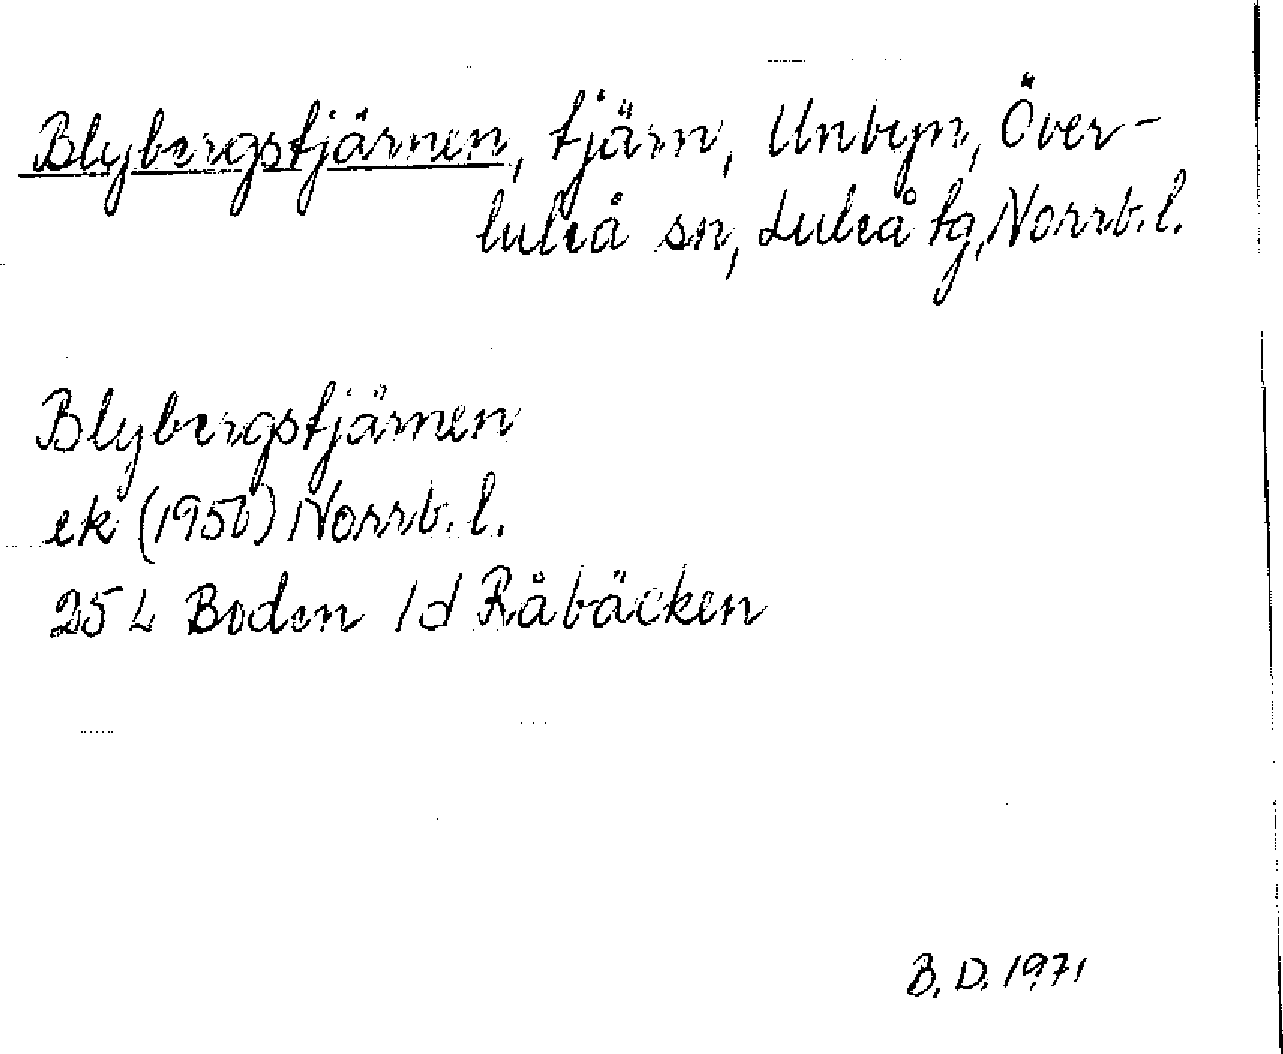 Blybergstjärnen, tjärn, Unbyn, Över-
luleå sn, Luleå tg, Norrb. l.
Blybergstjärnen
ek (1956) Norrb. l.
25 L Boden 1d Råbäcken
B. D. 1971